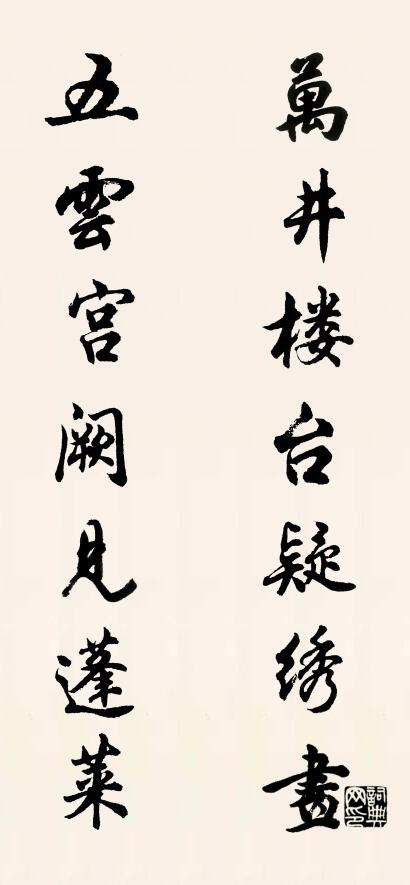 萬井楼台疑绣畫
五雲宫阙見蓬莱
詞典网印